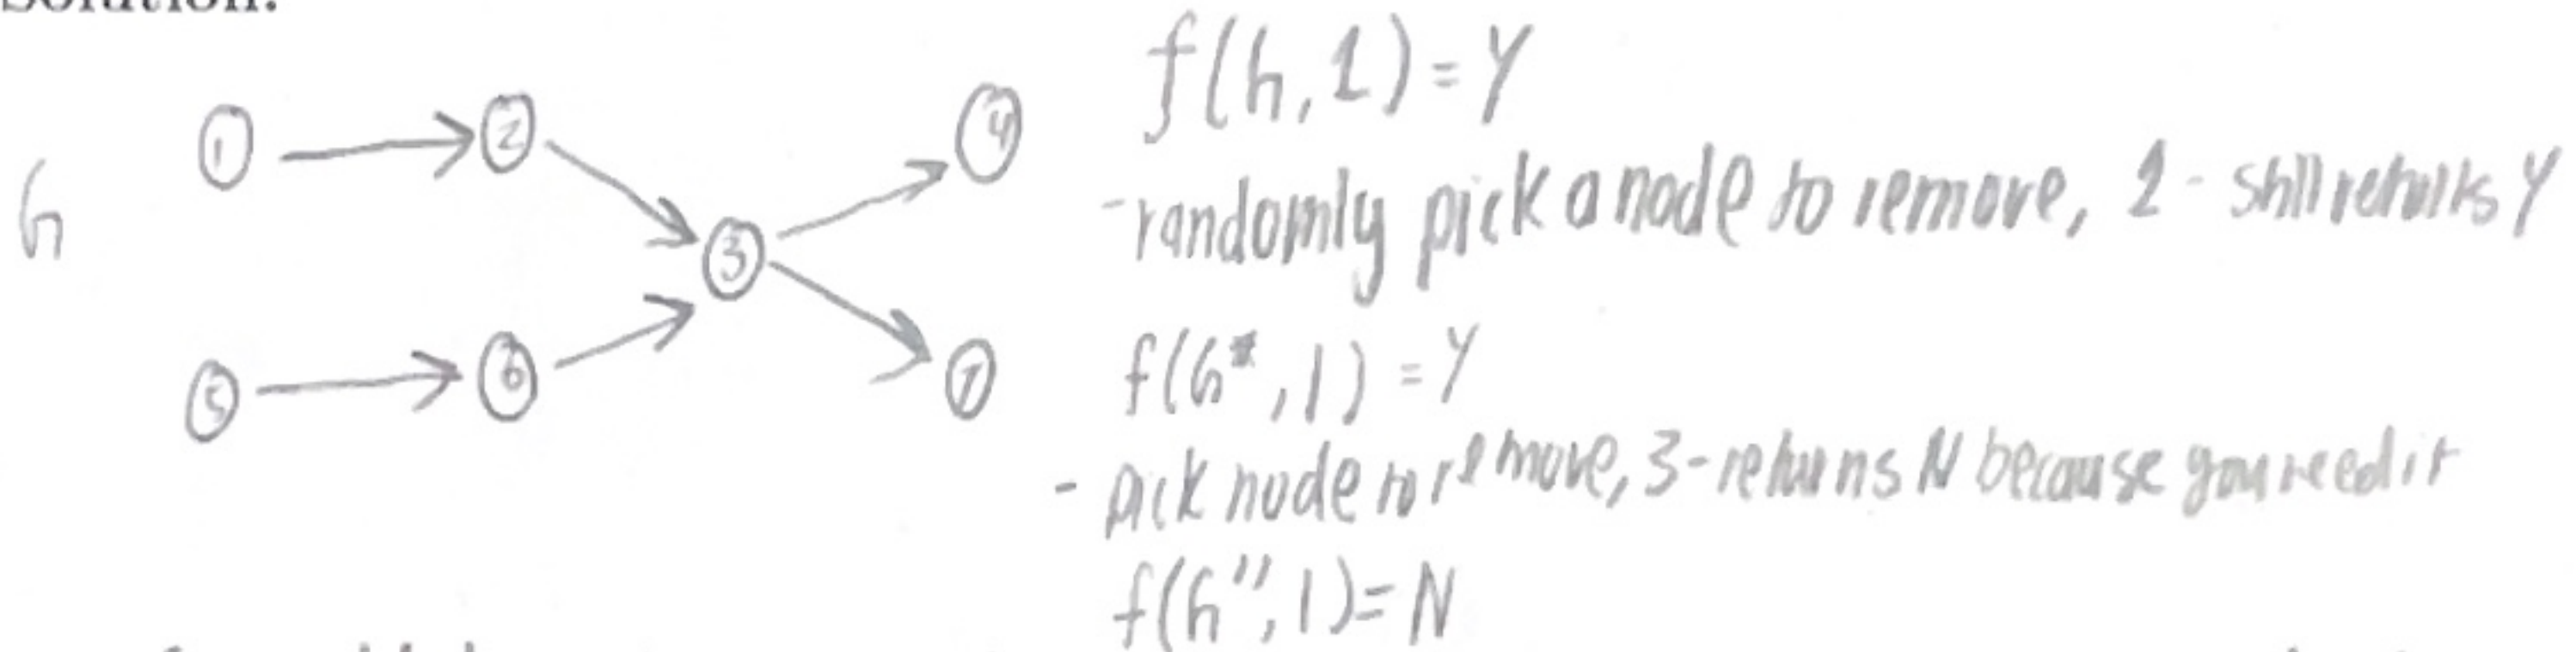 Solution:
G
1
2
3
4
5
6
7
f(G, 1) = Y
- randomly pick a node to remove, 2 - still returns Y
f(G*, 1) = Y
- pick node to remove, 3 - returns N because you need it
f(G'', 1) = N